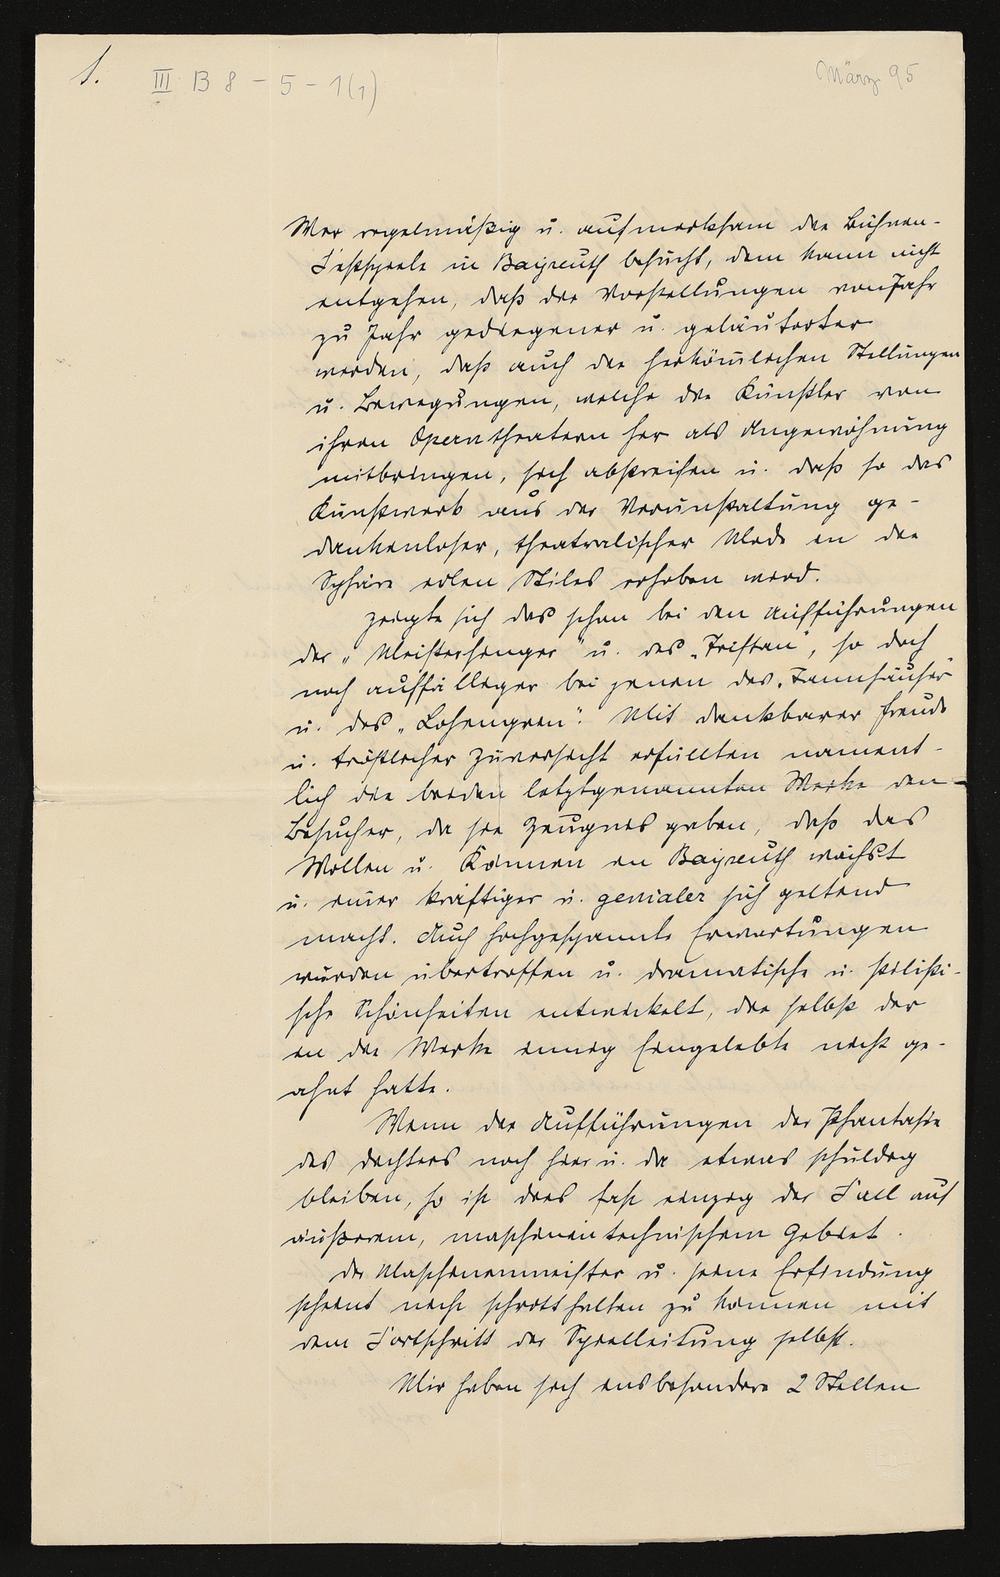 1.
III B 8 - 5 - 1(1)
März 95
Wer regelmäßig u. aufmerksam die Bühnen-
Festspiele in Bayreuth besucht, dem kann nicht
entgehen, daß die Vorstellungen von Jahr
zu Jahr gediegener u. geläuterter
werden, daß auch die herköm̅lichen Stellungen
u. Bewegungen, welche die Künstler von
ihren Operntheatern her als Angewöhnung
mitbringen, sich abstreifen u. daß so das
Kunstwerk aus der Verunstaltung ge-
dankenloser, theatralischer Mode in die
Sphäre edlen Stiles erhoben wird.
Zeigte sich das schon bei den Aufführungen
der „Meistersinger" u. des „Tristan", so doch
noch auffälliger bei jenen des „Tannhäuser"
u. des „Lohengrin". Mit dankbarer Freude
u. tröstlicher Zuversicht erfüllten nament-
lich die beiden letztgenannten Werke den
Besucher, da sie Zeugnis gaben, daß das
Wollen u. Können in Bayreuth wächst
u. immer kräftiger u. genialer sich geltend
macht. Auch hochgespannte Erwartungen
wurden übertroffen u. dramatische u. stilisti-
sche Schönheiten entwickelt, die selbst der
in die Werke innig Eingelebte nicht ge-
ahnt hatte.
Wenn die Aufführungen der Phantasie
des Dichters noch hier u. da etwas schuldig
bleiben, so ist dies fast einzig der Fall auf
äußerem, maschinentechnischem Gebiet.
Der Maschinenmeister u. seine Erfindung
scheint nicht schritthalten zu können mit
dem Fortschritt der Spielleitung selbst.
Mir haben sich insbesondere 2 Stellen